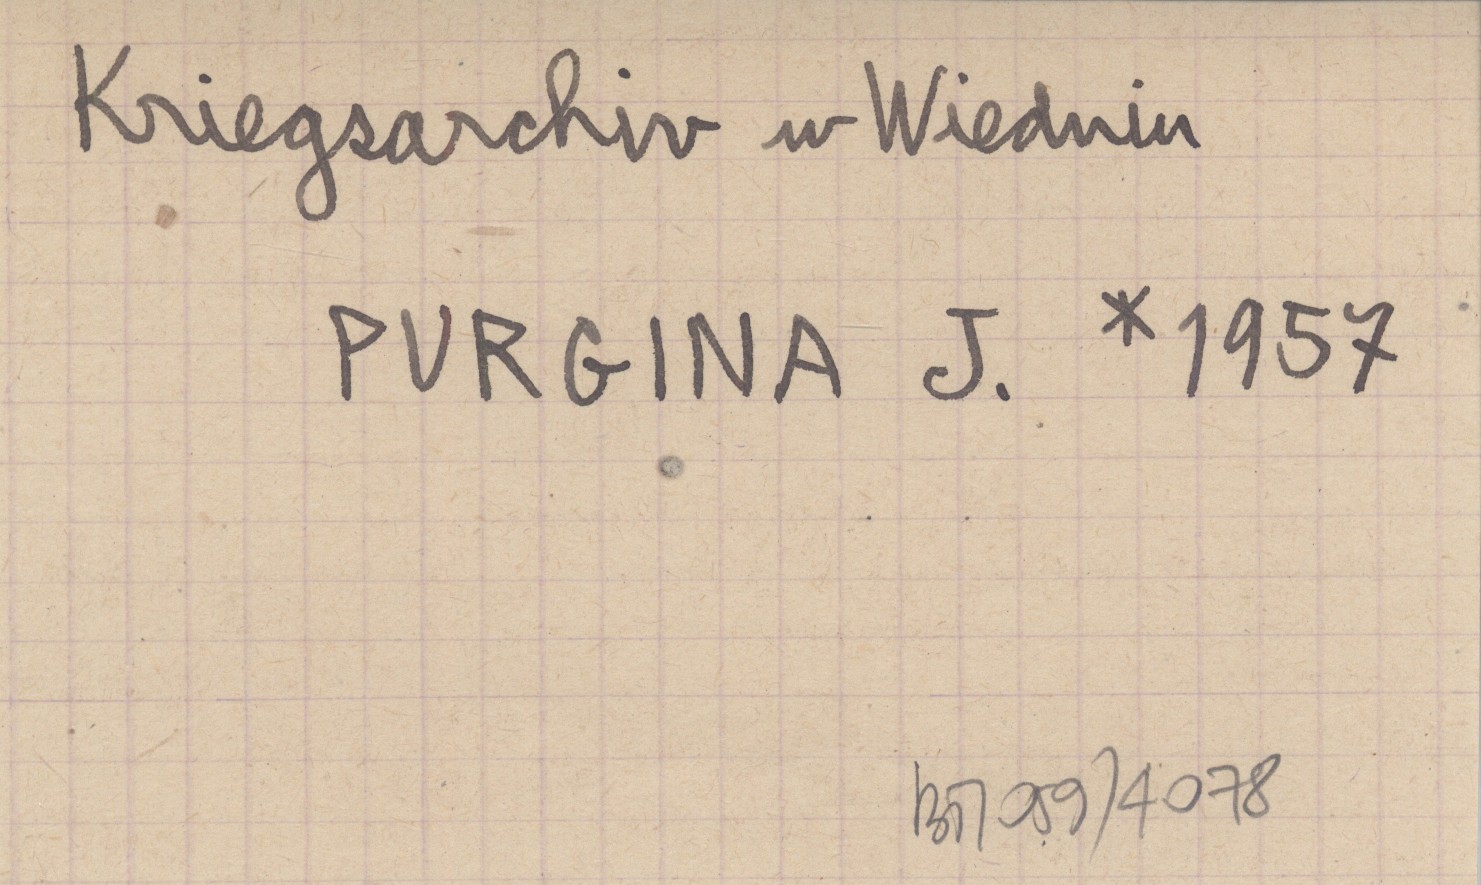 Kriegsarchiv w Wiedniu
PURGINA J. *1957
4078